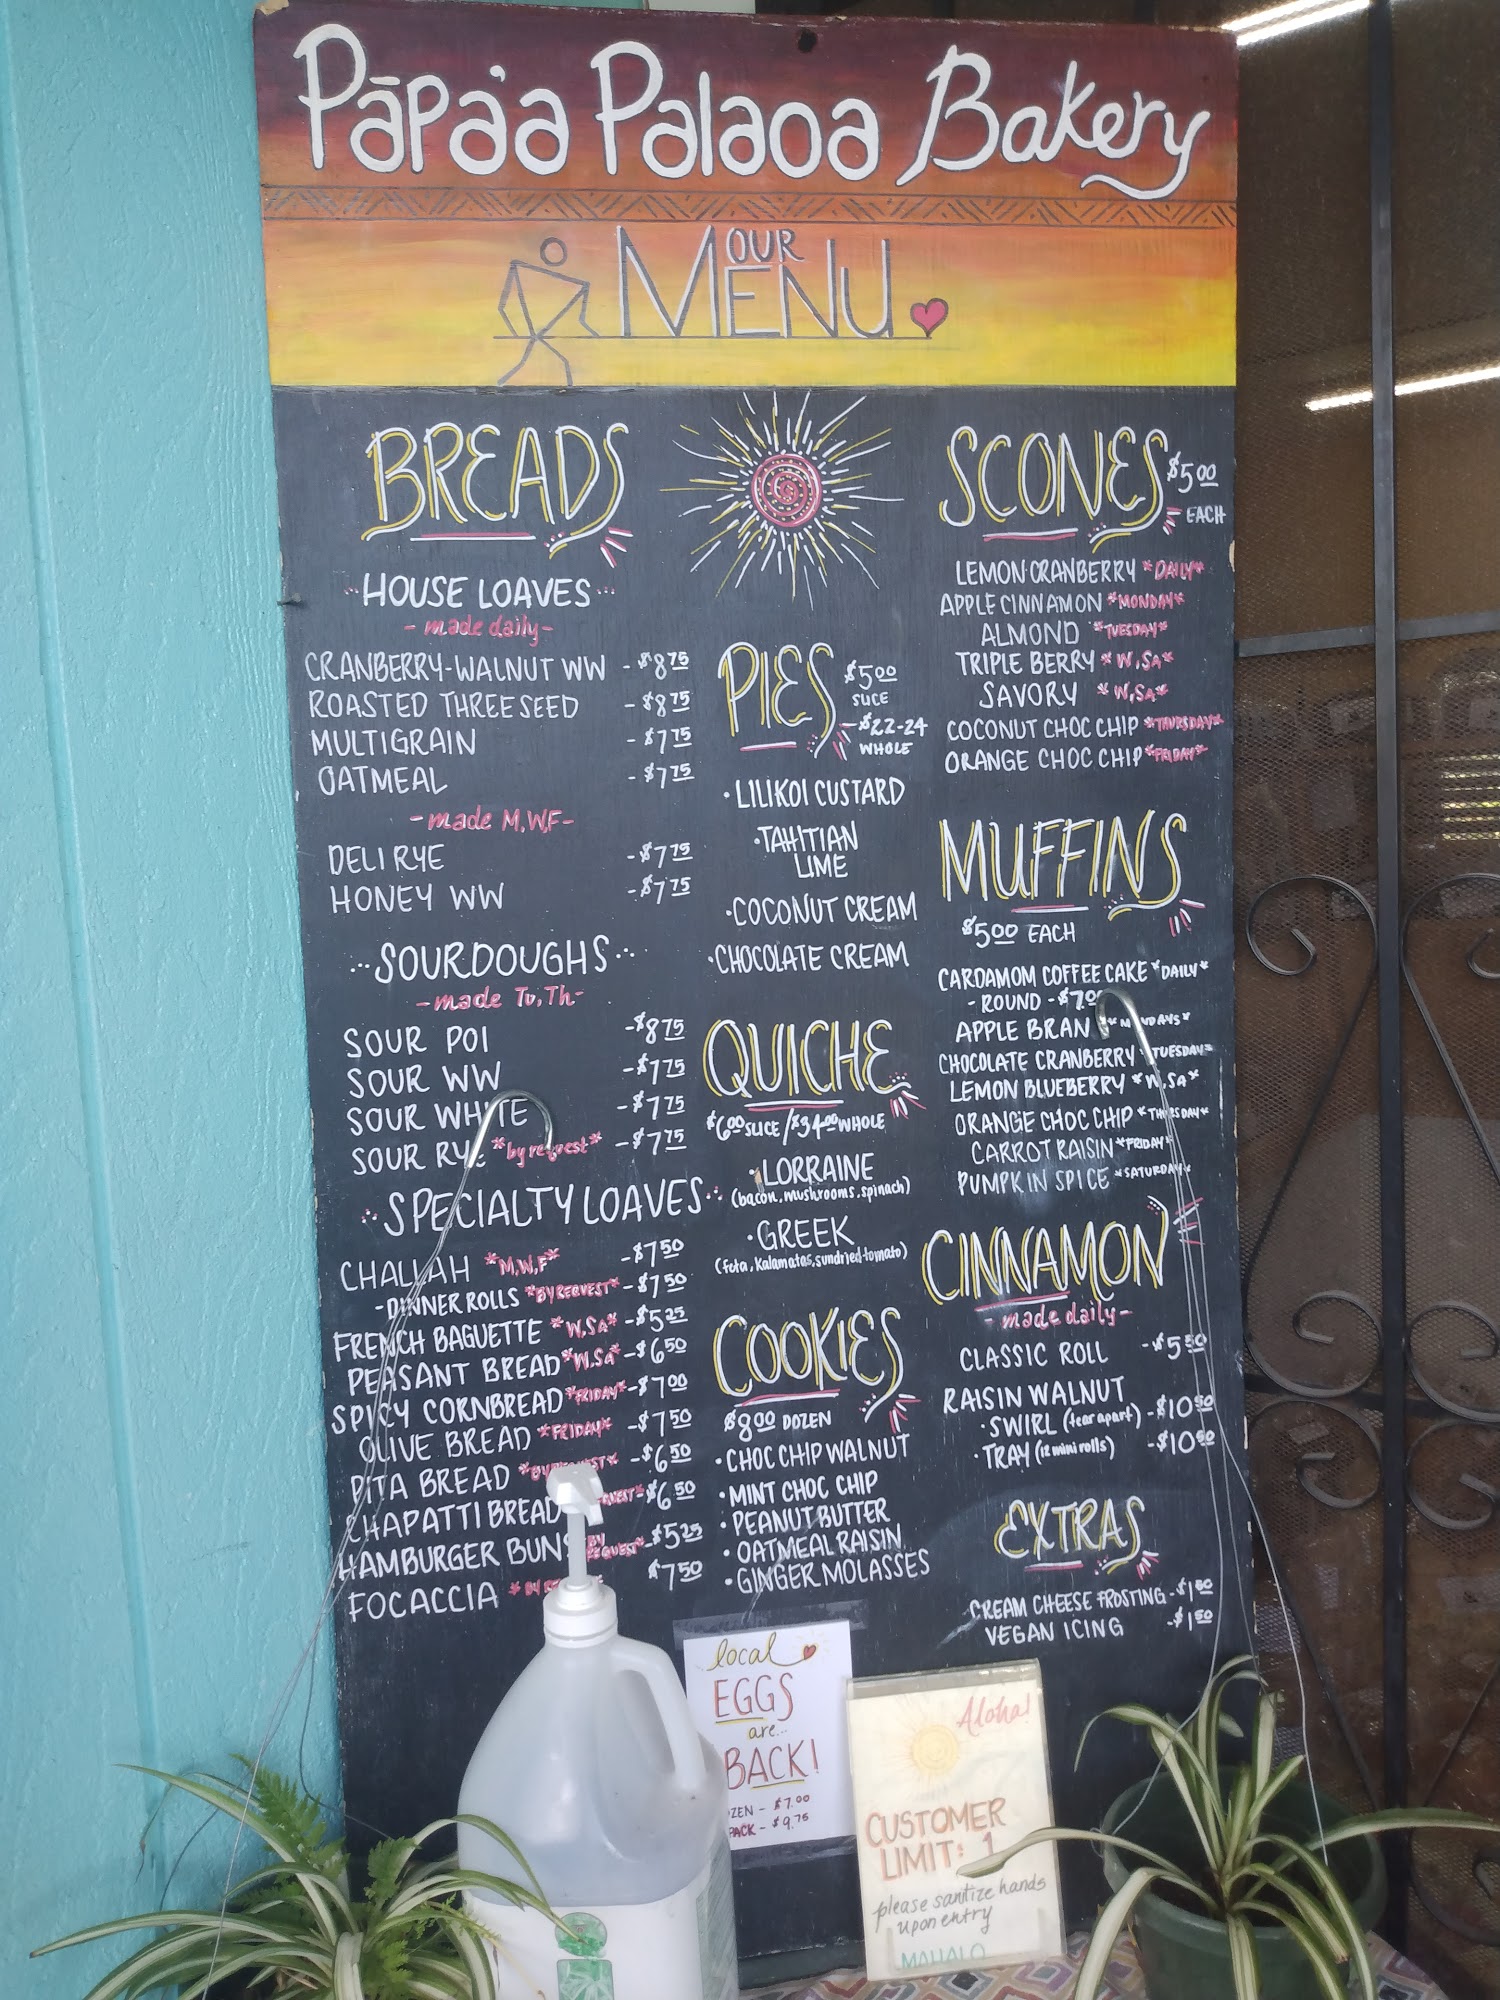 Pāpa'a Palaoa Bakery
OUR
MENU
BREADS
HOUSE LOAVES
- made daily -
CRANBERRY-WALNUT WW - $8.75
ROASTED THREE SEED - $8.75
MULTIGRAIN - $7.75
OATMEAL - $7.75
- made M,W,F -
DELI RYE - $7.75
HONEY WW - $7.75
SOURDOUGHS
- made Tu, Th -
SOUR POI - $8.75
SOUR WW - $7.75
SOUR WHITE - $7.75
SOUR RYE *by request* - $7.75
SPECIALTY LOAVES
CHALLAH *M,W,F* - $7.50
- DINNER ROLLS *BY REQUEST* - $7.50
FRENCH BAGUETTE *W,SA* - $5.25
PEASANT BREAD *W,Sa* - $6.50
SPICY CORNBREAD *FRIDAY* - $7.00
OLIVE BREAD *FRIDAY* - $7.50
PITA BREAD *BY REQUEST* - $6.50
CHAPATTI BREAD REQUEST* - $6.50
HAMBURGER BUNS BY REQUEST* - $5.25
FOCACCIA *BY $7.50
PIES
$5.00
SLICE
- $22-24
WHOLE
· LILIKOI CUSTARD
· TAHITIAN
LIME
· COCONUT CREAM
· CHOCOLATE CREAM
QUICHE
$6.00 SLICE / $34.00 WHOLE
· LORRAINE
(bacon, mushrooms, spinach)
· GREEK
(feta, kalamatas, sundried-tomato)
COOKIES
$8.00 DOZEN
· CHOC CHIP WALNUT
· MINT CHOC CHIP
· PEANUT BUTTER
· OATMEAL RAISIN
· GINGER MOLASSES
SCONES
$5.00
EACH
LEMON CRANBERRY *DAILY*
APPLE CINNAMON *MONDAY*
ALMOND *TUESDAY*
TRIPLE BERRY *W,SA*
SAVORY *W,SA*
COCONUT CHOC CHIP *THURSDAY*
ORANGE CHOC CHIP *FRIDAY*
MUFFINS
$5.00 EACH
CARDAMOM COFFEE CAKE *DAILY*
- ROUND - $7.0
APPLE BRAN *MONDAYS*
CHOCOLATE CRANBERRY *TUESDAY*
LEMON BLUEBERRY *W,SA*
ORANGE CHOC CHIP *THURSDAY*
CARROT RAISIN *FRIDAY*
PUMPKIN SPICE *SATURDAY*
CINNAMON
- made daily -
CLASSIC ROLL - $5.50
RAISIN WALNUT
· SWIRL (tear apart) - $10.50
· TRAY (12 mini rolls) - $10.50
EXTRAS
CREAM CHEESE FROSTING - $1.00
VEGAN ICING - $1.50
local
EGGS
are...
BACK!
ZEN - $7.00
PACK - $9.75
Aloha!
CUSTOMER
LIMIT: 1
please sanitize hands
upon entry
MAHALO